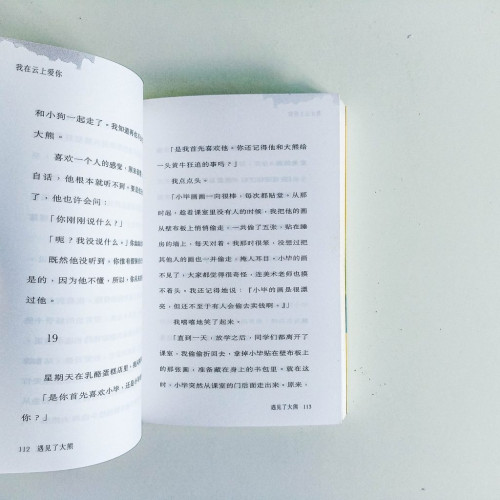 我在云上爱你
和小狗一起走了。我知道
大熊。
喜欢一个人的感觉,
自话,他根本就听不到。
了,他也许会问:
「你刚刚说什么?」
「呃?我没说什么。」
既然他没听到,你惟有
是的,因为他不懂,所以,
过他。
19
星期天在乳酪蛋糕店里,
「是你首先喜欢小毕,还是
你?」
112 遇见了大熊
「是我首先喜欢他。你还记得他和大熊给
一头黄牛狂追的事吗?」
我点点头。
「小毕画画一向很棒,每次都贴堂。从那
时起,趁着课室里没有人的时候,我把他的画
从壁布板上悄悄偷走。一共偷了五张,贴在睡
房的墙上,每天对着。我那时很笨,没想过把
其他人的画也一并偷走,掩人耳目。小毕的画
不见了,大家都觉得很奇怪,连美术老师也摸
不着头。我还记得她说:『小毕的画是很漂
亮,但还不至于有人会偷去卖钱啊。』」
我嘻嘻地笑了起来。
「直到一天,放学之后,同学们都离开了
课室,我偷偷折回去,拿掉小毕贴在壁布板上
的那张画,准备藏在身上的书包里。就在这
时,小毕突然从课室的门后面走出来。原来,
遇见了大熊 113